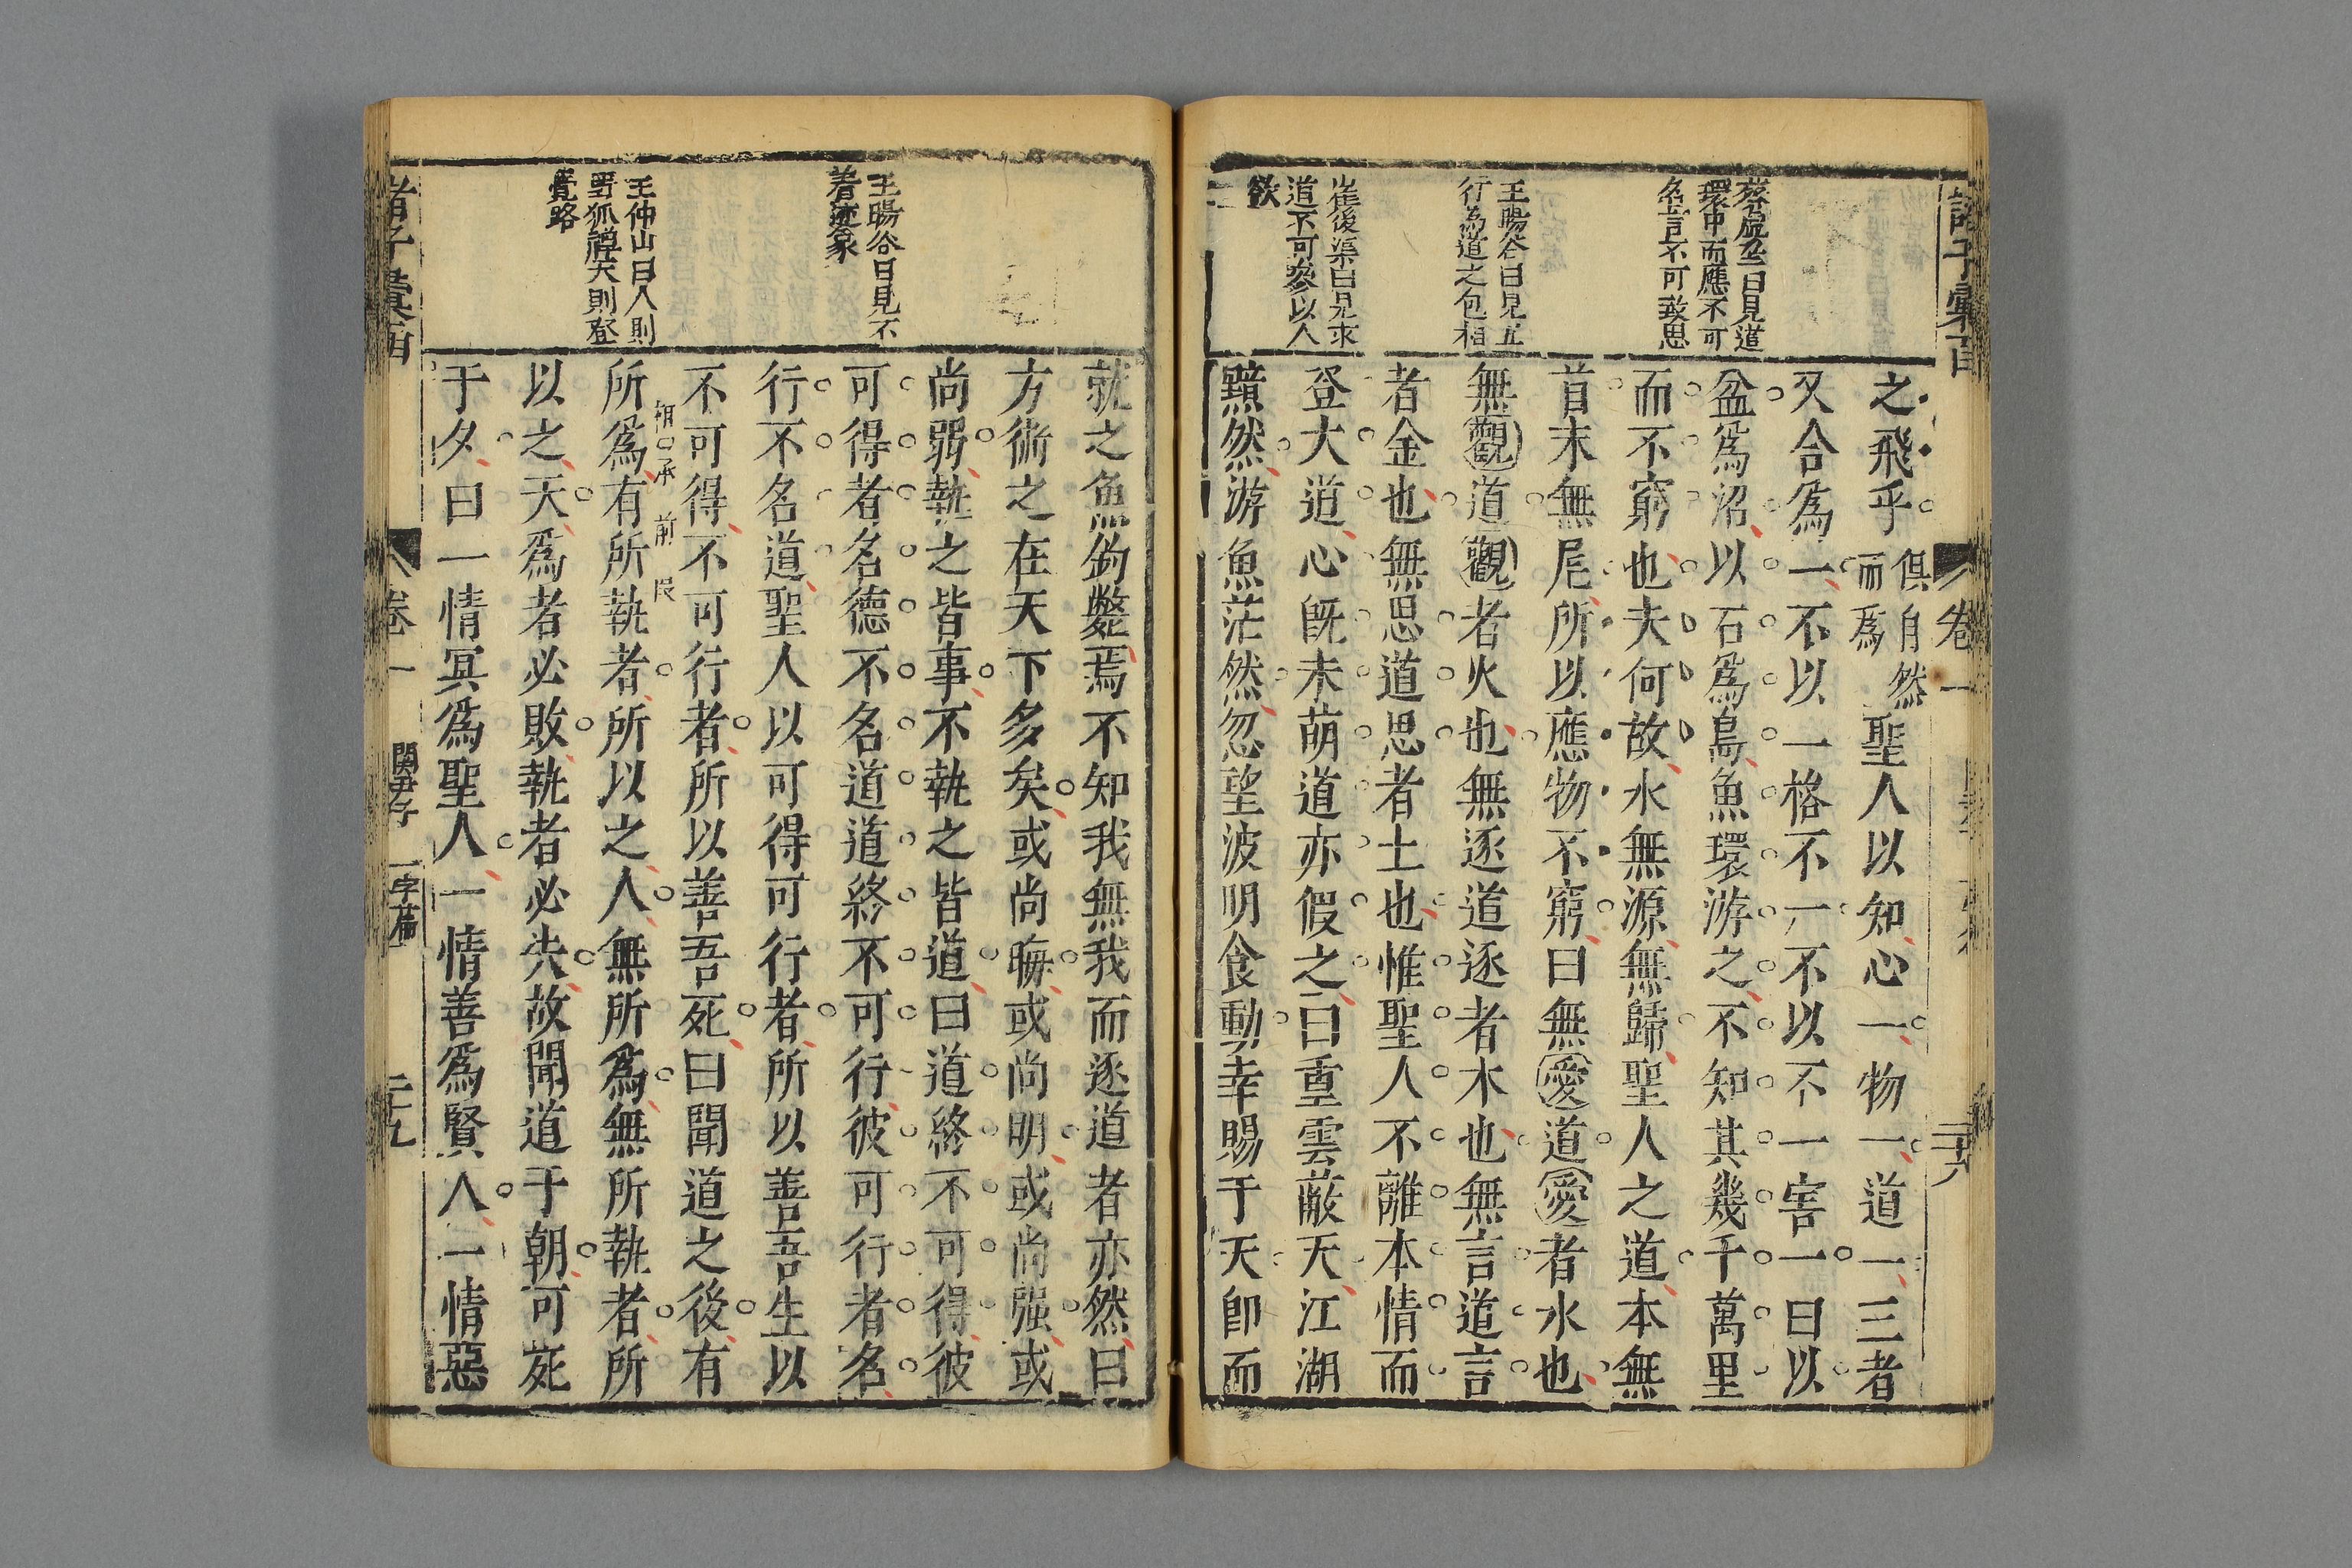 蔡虛𠫤曰見道
環中而應不可
名言不可致思
王暘谷曰見五
行為道之包相
崔後渠曰見求
道不可參以人
欲
之飛乎俱自然而為聖人以知心一物一道一三者
又合爲一不以一格不一不以不一害一曰以
盆爲沼以石爲島魚環游之不知其幾千萬里
而不窮也夫何故水無源無歸聖人之道本無
首末無尾所以應物不窮曰無愛道愛者水也
無觀道觀者火也無逐道逐者木也無言道言
者金也無思道思者土也惟聖人不離本情而
登大道心旣未萌道亦假之曰重雲蔽天江湖
黯然游魚茫然忽望波明食動幸賜于天卽而
王暘谷曰見不
着迹象
王仲山曰人則
野狐禪天則登
覺路
就之魚釣斃焉不知我無我而逐道者亦然曰
方術之在天下多矣或尚晦或尚明或尚强或
尚弱執之皆事不執之皆道曰道終不可得彼
可得者名德不名道道終不可行彼可行者名
行不名道聖人以可得可行者所以善吾生以
不可得不可行者所以善吾死曰聞道之後有
所爲有所執者所以之人無所爲無所執者所
以之天爲者必敗執者必失故聞道于朝可死
于夕曰一情冥爲聖人一情善爲賢人一情惡
卷一
關尹子
一字篇
二十九